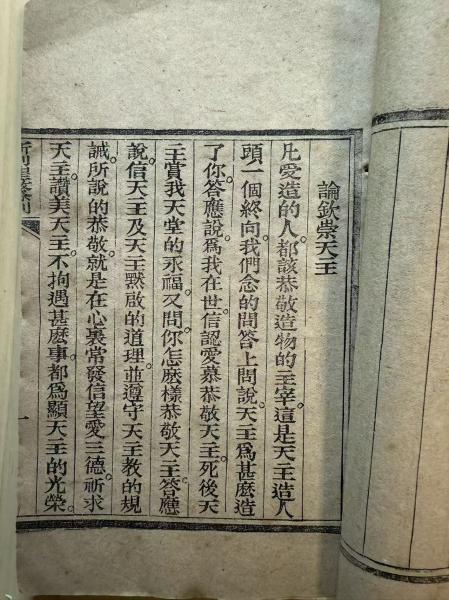 論欽崇天主
凡愛造的人。都該恭敬造物的主宰。這是天主造人
頭一個終向。我們念的問答上問說。天主爲甚麽造
了你。答應說。爲我在世。信認愛慕恭敬天主。死後天
主賞我天堂的永福。又問你怎麽樣恭敬天主。答應
說。信天主及天主默啟的道理。並遵守天主教的規
誡。所說的恭敬。就是在心裏常發信望愛三德。祈求
天主。讚美天主。不拘遇甚麽事。都爲顯天主的光榮。
一